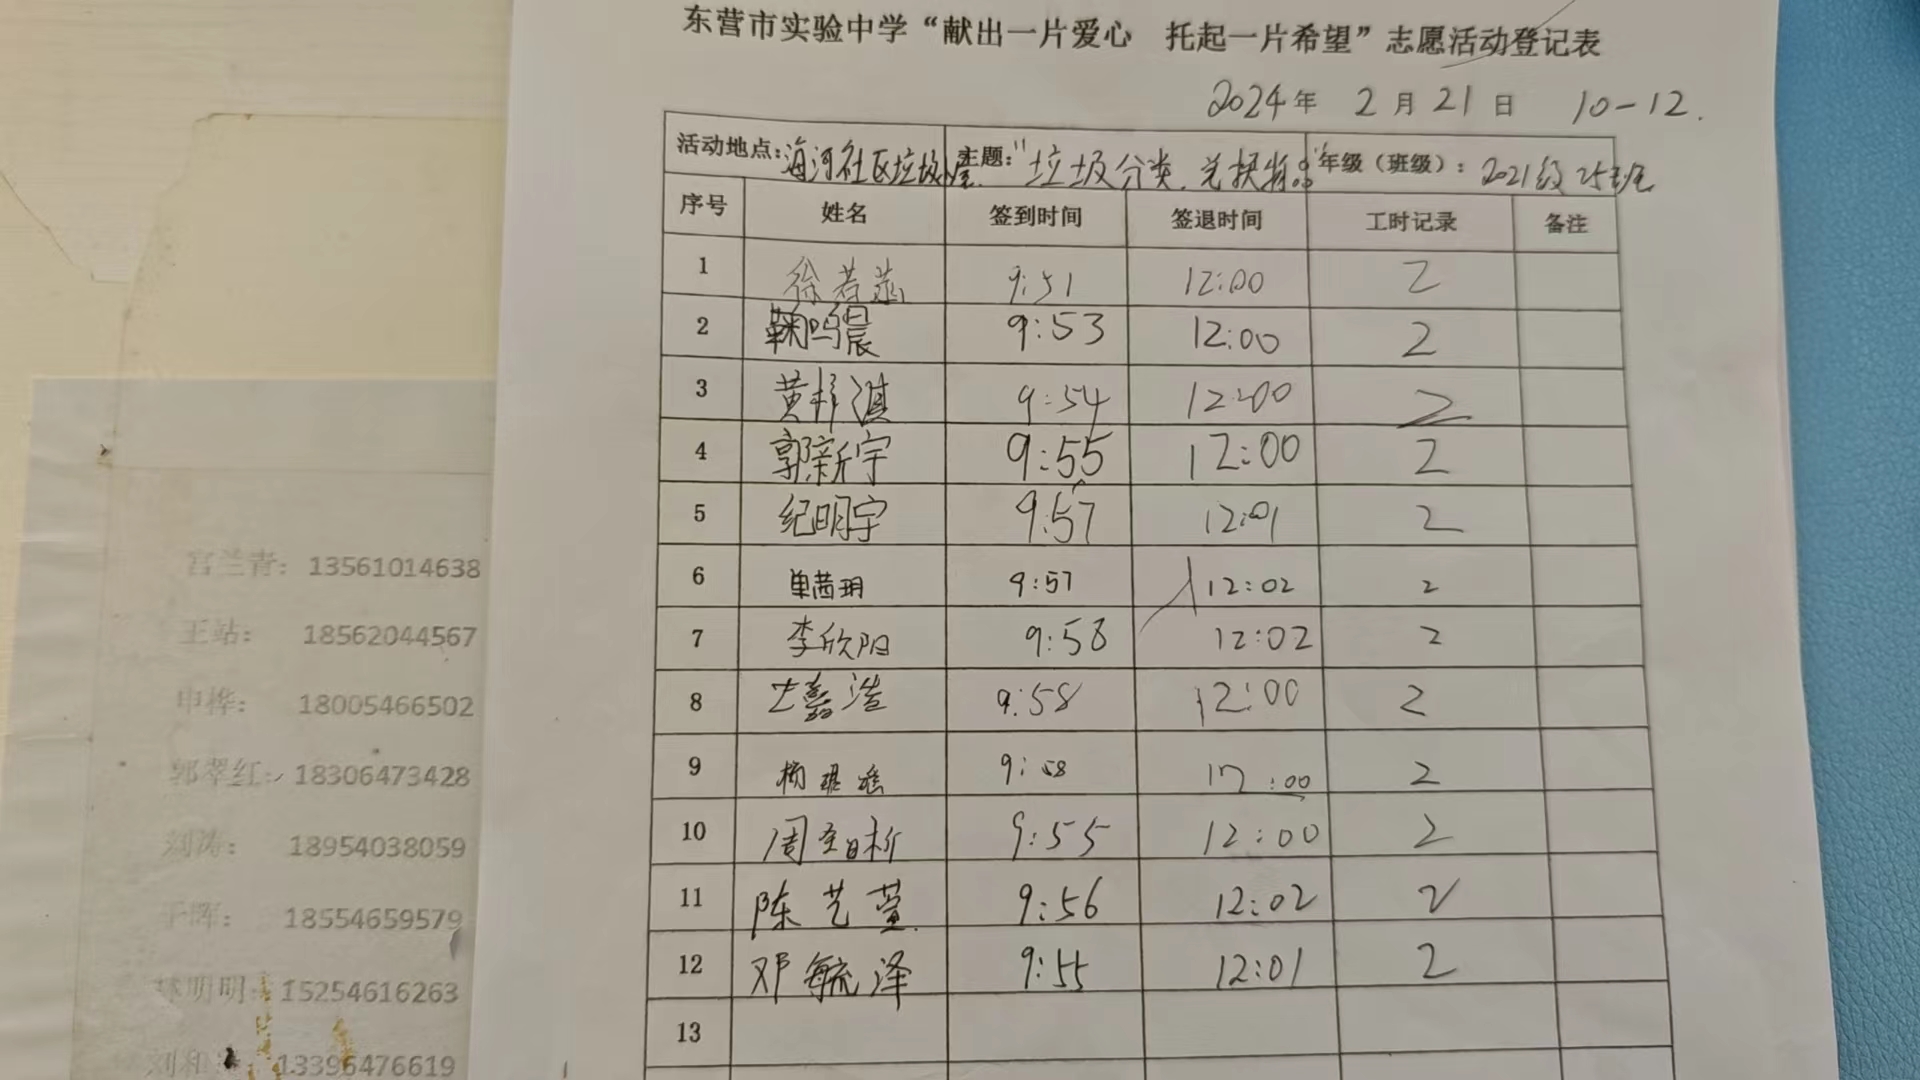 东营市实验中学“献出一片爱心 托起一片希望”志愿活动登记表
2024年 2月21日 10-12.
活动地点:海河社区垃圾屋 主题:“垃圾分类.兑换物品” 年级（班级）: 2021级25班
序号 姓名 签到时间 签退时间 工时记录 备注
1 徐若菡 9:51 12:00 2
2 鞠鸣晨 9:53 12:00 2
3 黄梓淇 9:54 12:00 2
4 郭新宇 9:55 12:00 2
5 纪明宇 9:57 12:01 2
6 单茜玥 9:57 12:02 2
7 李欣阳 9:58 12:02 2
8 浩 9:58 12:00 2
9 杨 瑶 9:58 12:00 2
10 周 9:55 12:00 2
11 陈艺萱 9:56 12:02 2
12 邓毓泽 9:55 12:01 2
13
宫兰青: 13561014638
王站: 18562044567
申桦: 18005466502
郭翠红: 18306473428
刘涛: 18954038059
于晖: 18554659579
林明明: 15254616263
刘和 13396476619